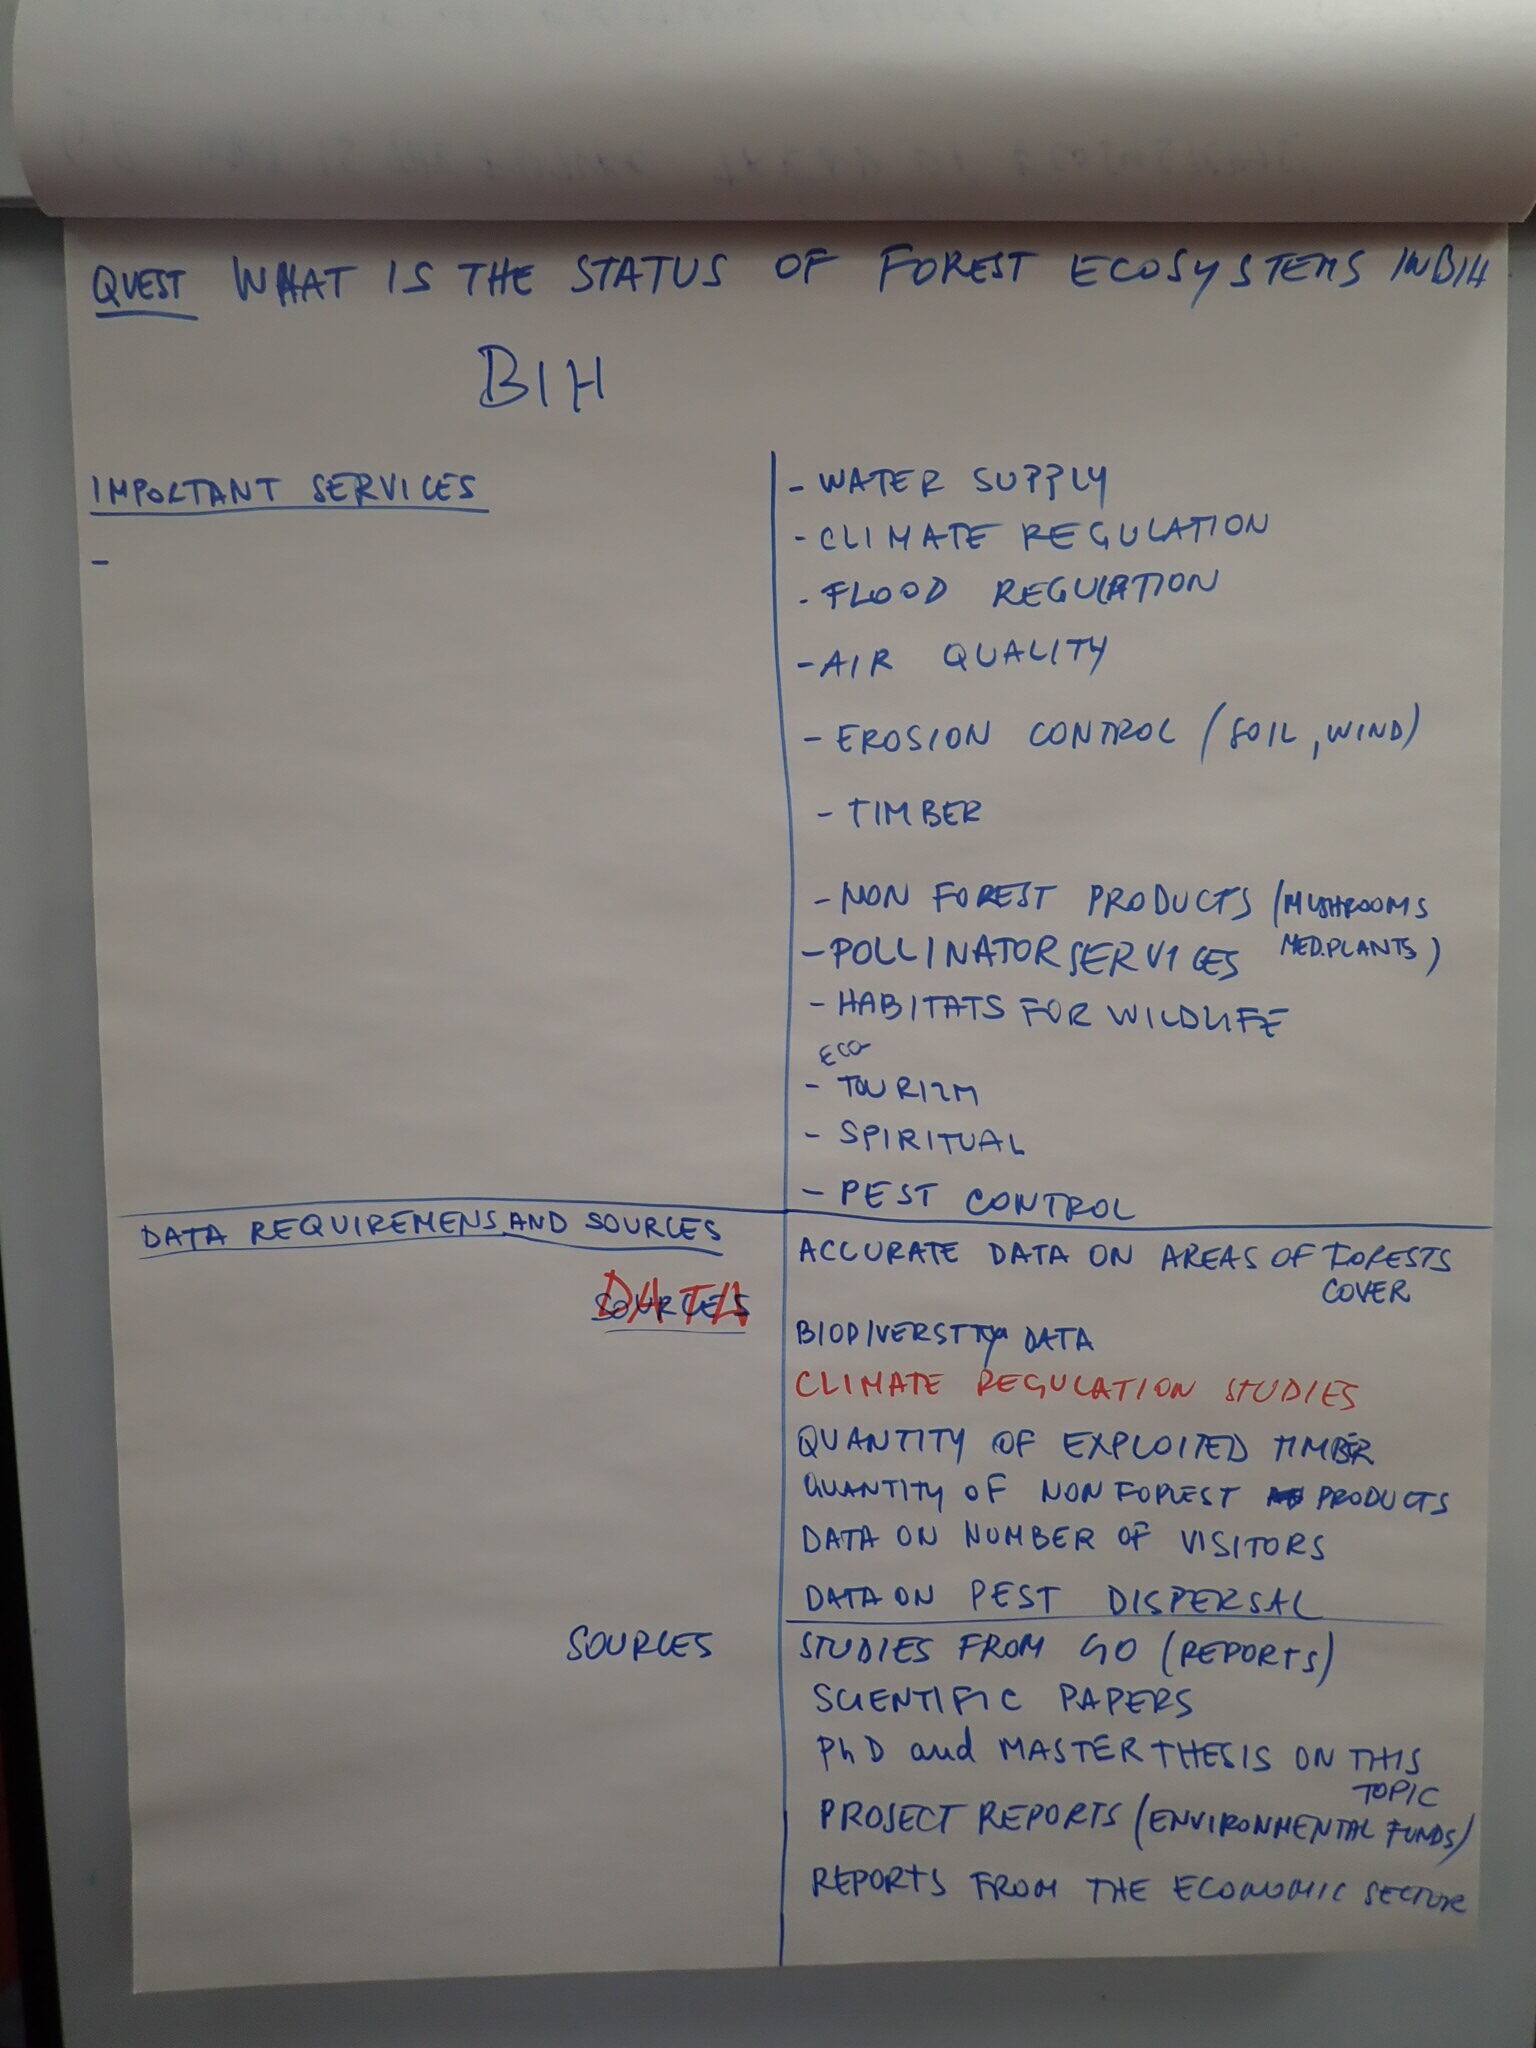 QUEST WHAT IS THE STATUS OF FOREST ECOSYSTEMS IN BIH
BIH
IMPORTANT SERVICES
-
- WATER SUPPLY
- CLIMATE REGULATION
- FLOOD REGULATION
- AIR QUALITY
- EROSION CONTROL (SOIL, WIND)
- TIMBER
- NON FOREST PRODUCTS (MUSHROOMS
MED.PLANTS)
- POLLINATOR SERVICES
- HABITATS FOR WILDLIFE
ECO-
- TOURIZM
- SPIRITUAL
- PEST CONTROL
DATA REQUIREMENS AND SOURCES
DATA
ACCURATE DATA ON AREAS OF FORESTS
COVER
BIODIVERSTTY DATA
CLIMATE REGULATION STUDIES
QUANTITY OF EXPLOITED TIMBER
QUANTITY OF NON FOREST PRODUCTS
DATA ON NUMBER OF VISITORS
DATA ON PEST DISPERSAL
SOURCES
STUDIES FROM GO (REPORTS)
SCIENTIFIC PAPERS
PhD and MASTER THESIS ON THIS
TOPIC
PROJECT REPORTS (ENVIRONMENTAL FUNDS)
REPORTS FROM THE ECONOMIC SECTOR